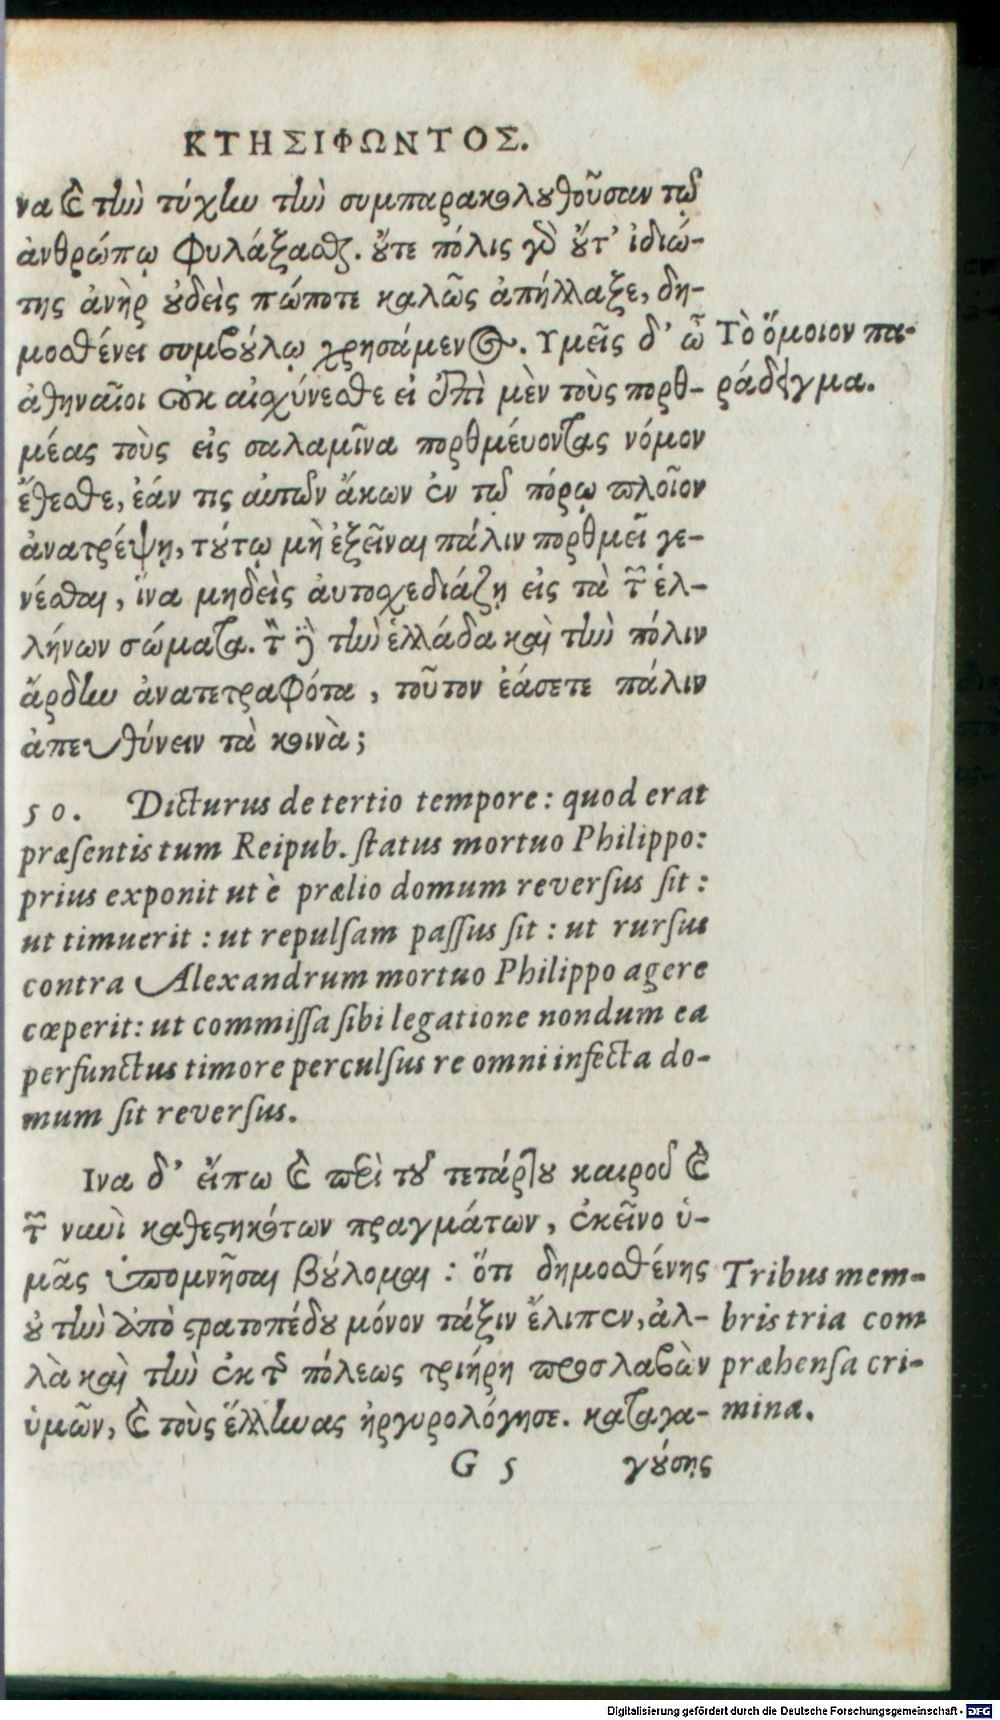 ΚΤΗΣΙΦΩΝΤΟΣ.
να καὶ τὴν τύχην τὴν συμπαρακολουθοῦσαν τῷ
ἀνθρώπῳ φυλάξασθαι. οὔτε πόλις γὰρ οὔτ' ἰδιώ-
της ἀνὴρ οὐδεὶς πώποτε καλῶς ἀπήλλαξε, δη-
μοσθένει συμβούλῳ χρησάμενος. Υμεῖς δ' ὦ
ἀθηναῖοι οὐκ αἰσχύνεσθε εἰ ἐπὶ μὲν τοὺς πορθ-
μέας τοὺς εἰς σαλαμῖνα πορθμέυοντας νόμον
ἔθεσθε, ἐάν τις αὐτῶν ἄκων ἐν τῷ πόρῳ πλοῖον
ἀνατρέψῃ, τούτῳ μὴ ἐξεῖναι πάλιν πορθμεῖ γε-
νέσθαι, ἵνα μηδεὶς ἀυτοσχεδιάζῃ εἰς τὰ τῶν ἑλ-
λήνων σώματα. τὸν δὲ τὴν ἑλλάδα καὶ τὴν πόλιν
ἄρδην ἀνατετραφότα, τοῦτον ἐάσετε πάλιν
ἀπευθύνειν τὰ κοινὰ;
Τὸ ὅμοιον πα-
ράδειγμα.
50. Dicturus de tertio tempore: quod erat
præsentis tum Reipub. status mortuo Philippo:
prius exponit ut è prælio domum reversus sit:
ut timuerit: ut repulsam passus sit: ut rursus
contra Alexandrum mortuo Philippo agere
cœperit: ut commissa sibi legatione nondum ea
perfunctus timore perculsus re omni infecta do-
mum sit reversus.
Ινα δ' εἴπω καὶ περὶ τοῦ τετάρτου καιροῦ καὶ
τῶν νυνὶ καθεστηκότων πραγμάτων, ἐκεῖνο ὑ-
μᾶς ὑπομνῆσαι βούλομαι: ὅτι δημοσθένης
οὐ τὴν ἀπὸ στρατοπέδου μόνον τάξιν ἔλιπεν, ἀλ-
λὰ καὶ τὴν ἐκ τῆς πόλεως τριήρη προσλαβὼν
ὑμῶν, καὶ τοὺς ἕλληνας ἠργυρολόγησε. καταγα-
Tribus mem-
bris tria com
præhensa cri-
mina.
G 5 γούσης
Digitalisierung gefördert durch die Deutsche Forschungsgemeinschaft - DFG